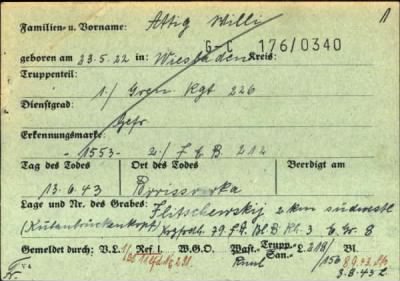 Familien- u. Vorname: Attig Willi
G-C 176/0340
geboren am 23.5.22 in: Wiesbaden Kreis:
Truppenteil:
1./ Gren Rgt 226
Dienstgrad:
Gefr
Erkennungsmarke:
-1553- 2./ J.E.B. 212
Tag des Todes Ort des Todes Beerdigt am
13.6.43 Borissowka
Lage und Nr. des Grabes: Slitschewskij 2 km südwestl
(Kubanbrückenkopf) 79. J.D. Bl B Rh. 3 Gr 8
Gemeldet durch: V.L. Ref I. W.G.O. Wast.- Trupp.- San.- L 218/ Bl.
/150 8.9.43
3.8.43